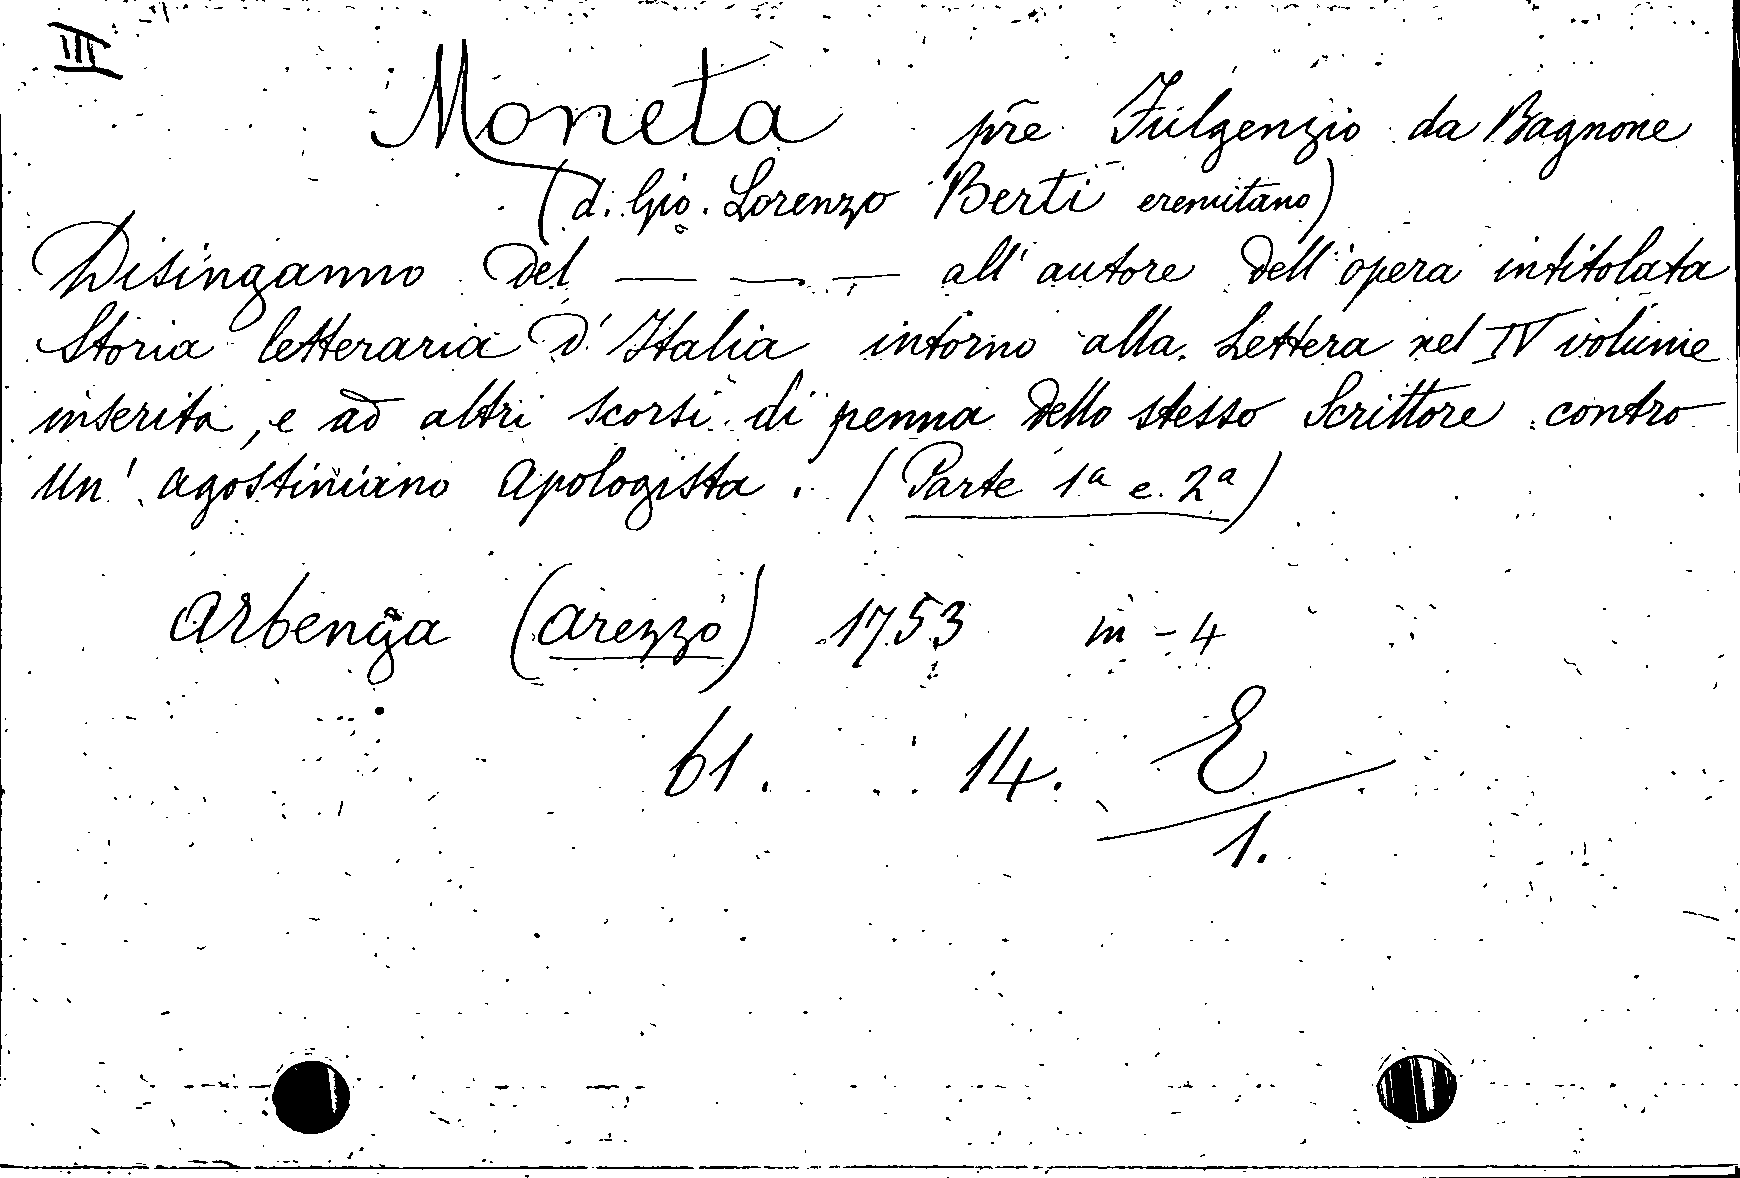 III
Moneta pr̃e Fulgenzio da Bagnone
(d. Gio. Lorenzo Berti eremitano)
Disinganno del — — — all' autore dell' opera intitolata
Storia letteraria d' Italia intorno alla Lettera nel IV volume
inserita, e ad altri scorsi di penna dello stesso Scrittore contro
un' agostiniano Apologista. (Parte 1ª e 2ª)
Arbenga (Arezzo) 1753 in - 4
61. 14. E
1.